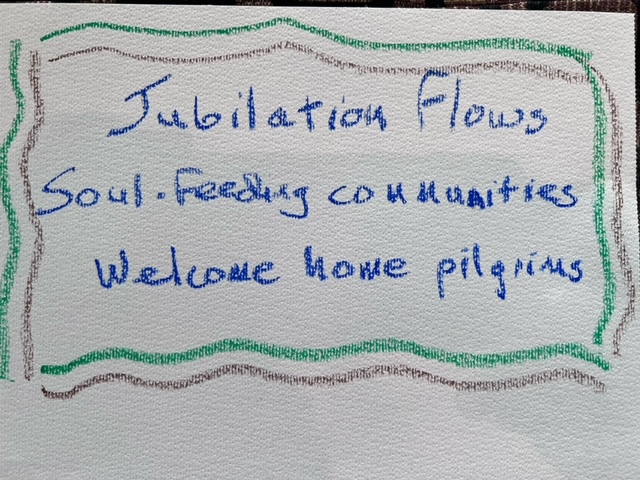 Jubilation Flows
Soul-Feeding communities
Welcome home pilgrims